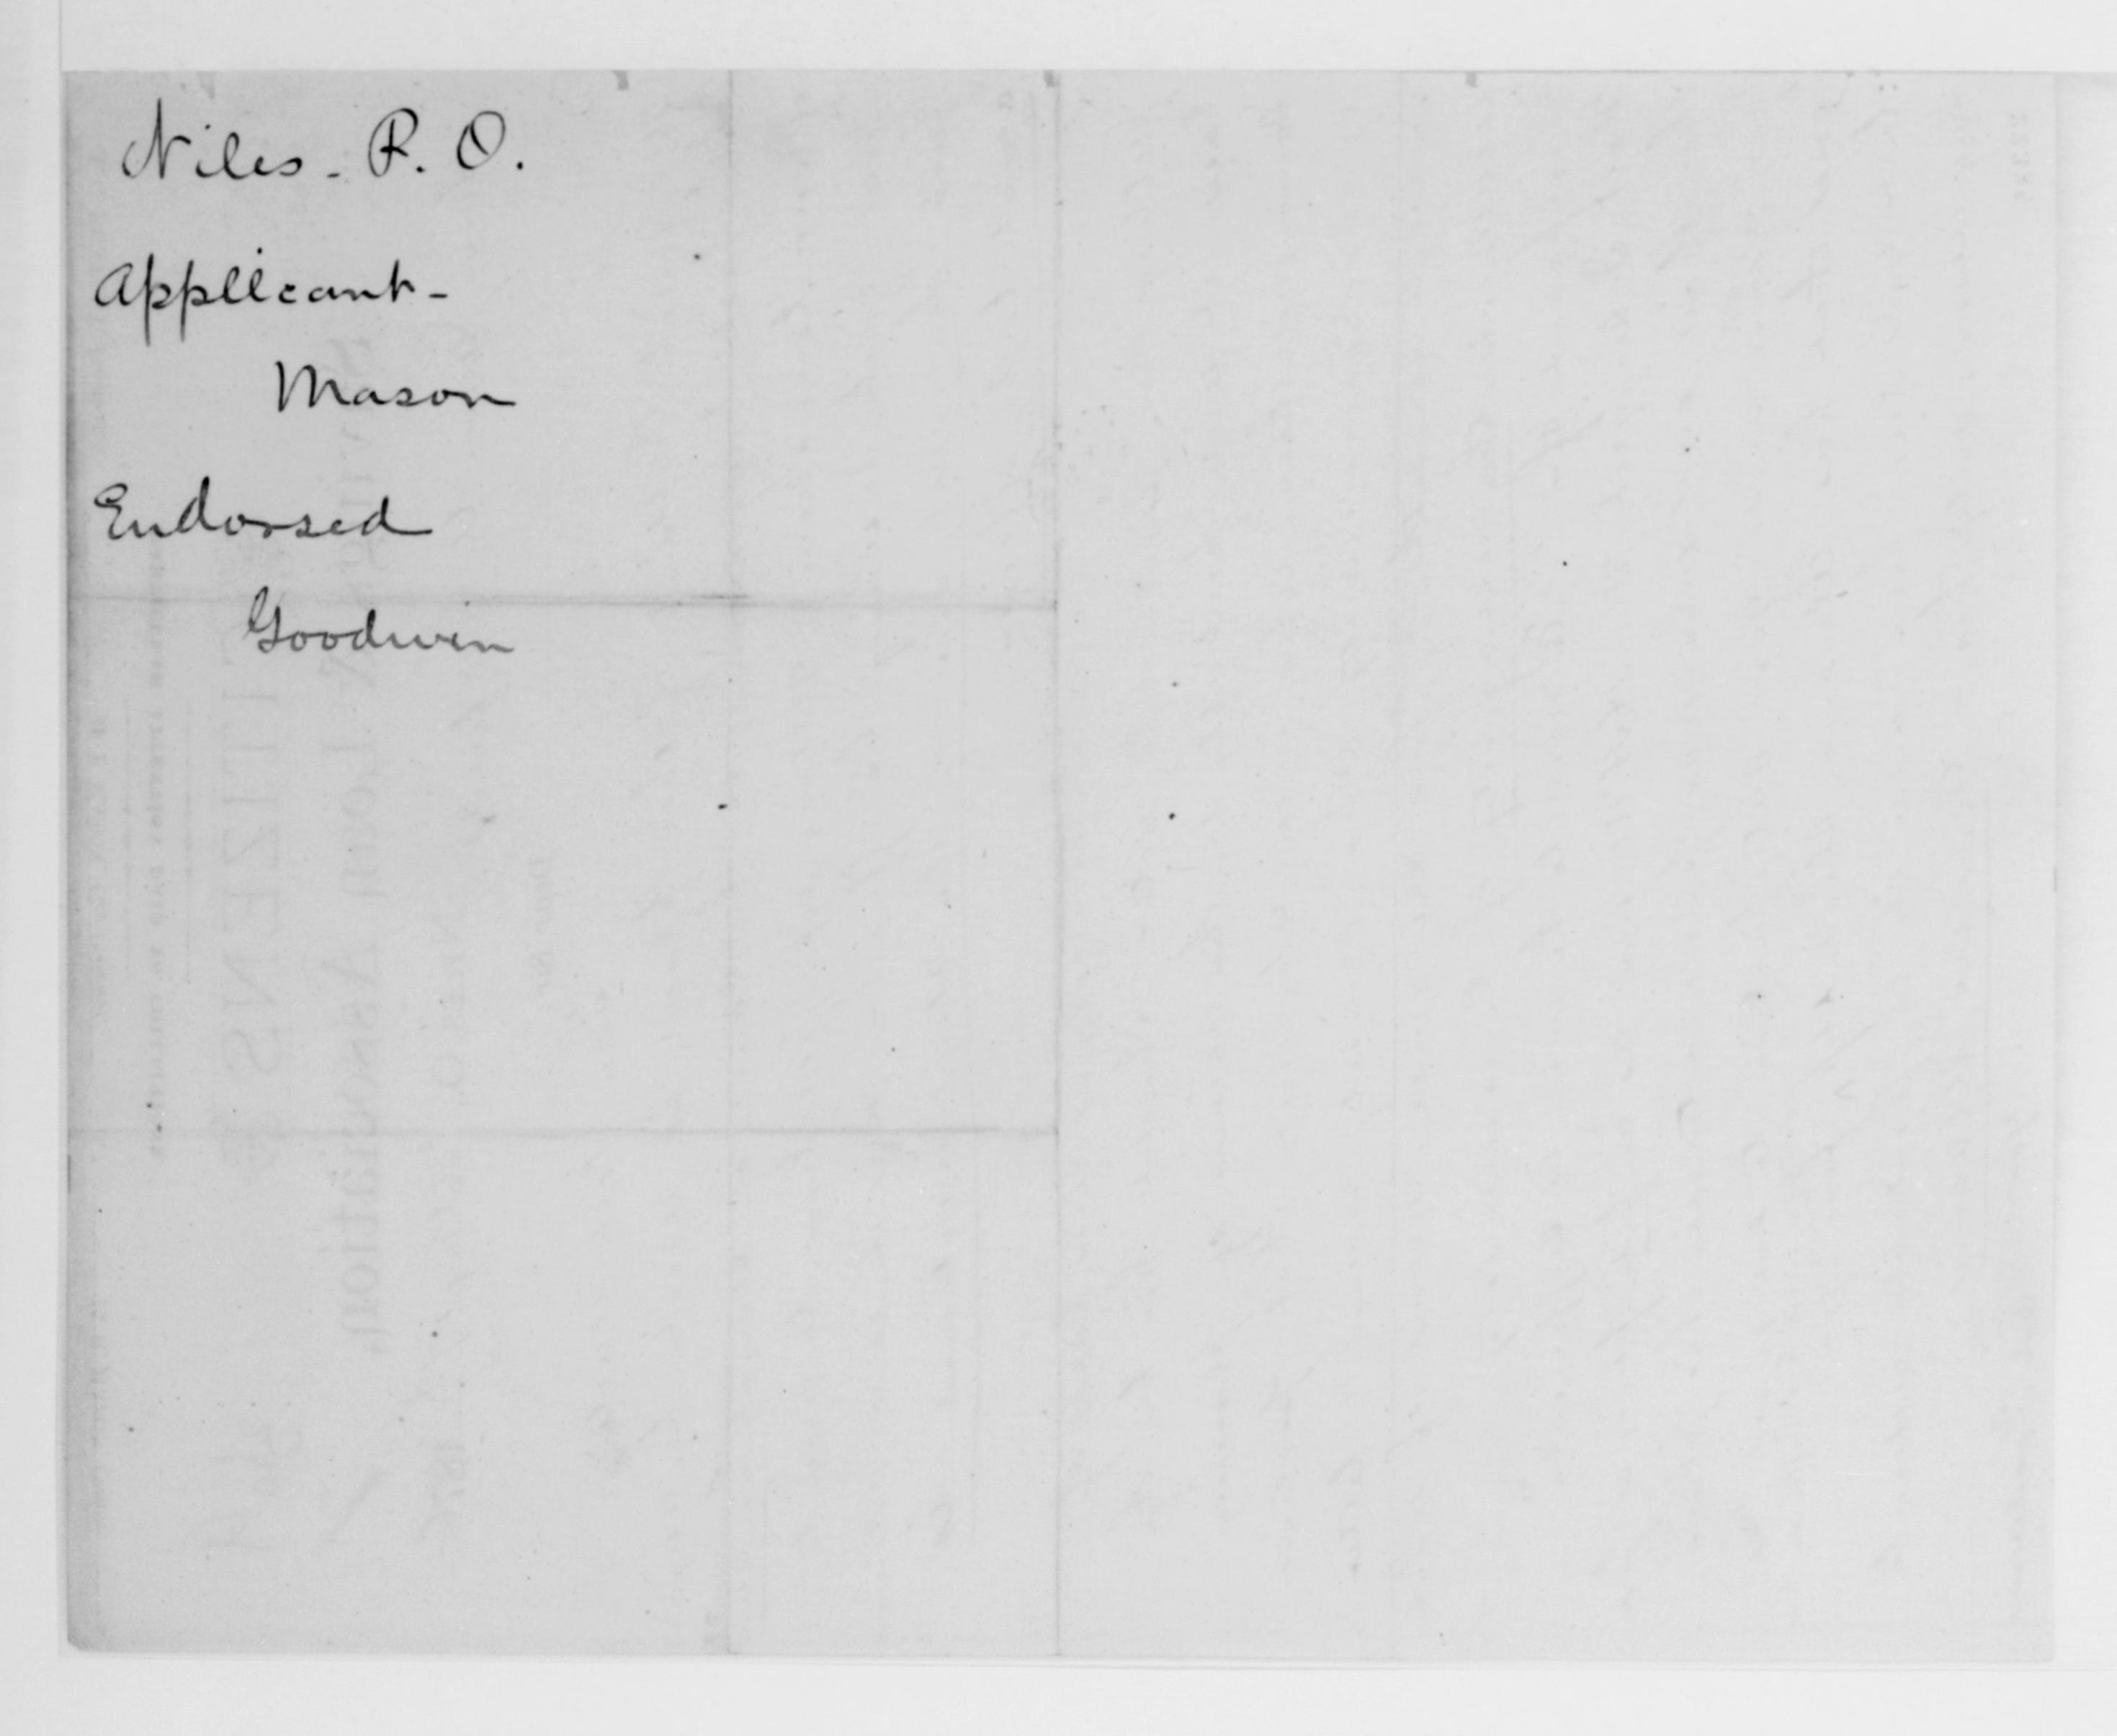 Niles - P. O.
Applicant -
Mason
Endorsed
Goodwin